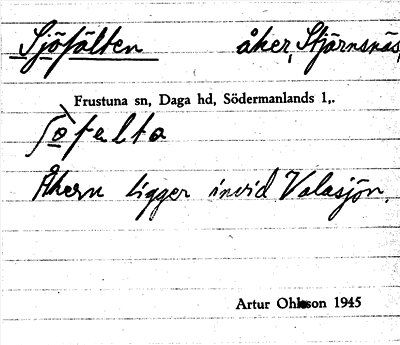 Sjöfälten åker, Stjärnsnäs,
Frustuna sn, Daga hd, Södermanlands l,.
Åkern ligger invid Valasjön.
Artur Ohlsson 1945